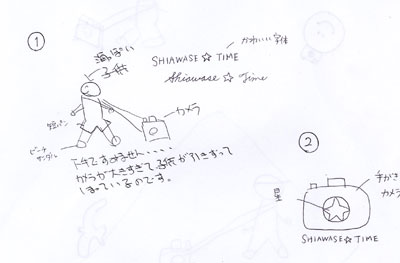 ①
子供
SHIAWASE☆TIME
かわいい字体
Shiawase ☆ Time
カメラ
短パン
ビーチ
サンダル
下手ですみません・・・・
カメラが大きすぎて子供が引きずって
しまっているのです。
②
手がき
カメラ
星
SHIAWASE☆TIME